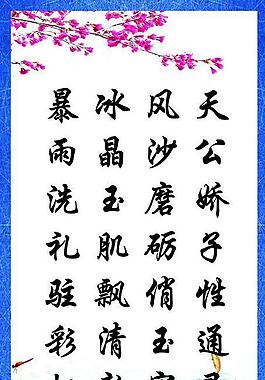 天公娇子性通
风沙磨砺俏玉
冰晶玉肌飘清
暴雨洗礼驻彩